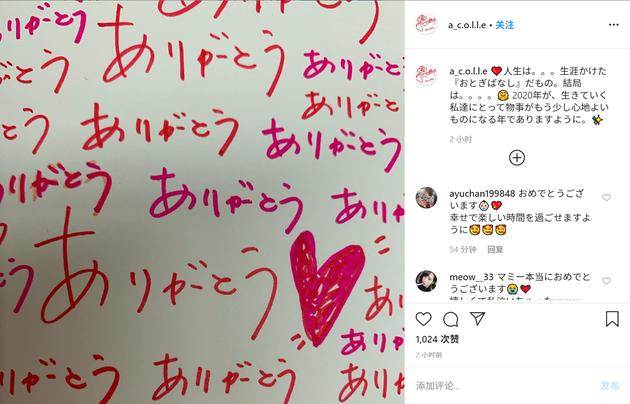 ありがとう
ありがとう
ありがとう
ありがとう
ありがとう
ありがとう
ありがとう
ありがとう
ありがとう
ありがとう
ありがとう
ありがとう
a_c.o.l.l.e • 关注
a_c.o.l.l.e ❤️人生は。。。生涯かけた
『おとぎばなし』だもの。結局
は。。。。🤗 2020年が、生きていく
私達にとって物事がもう少し心地よい
ものになる年でありますように。✨
2 小时
ayuchan199848 おめでとうござ
います👶🏻❤️
幸せで楽しい時間を過ごせますよ
うに🥰🥰🥰
54 分钟 回复
meow__33 マミー本当におめでと
うございます😭❤️
1,024 次赞
2 小时前
添加评论...
发布